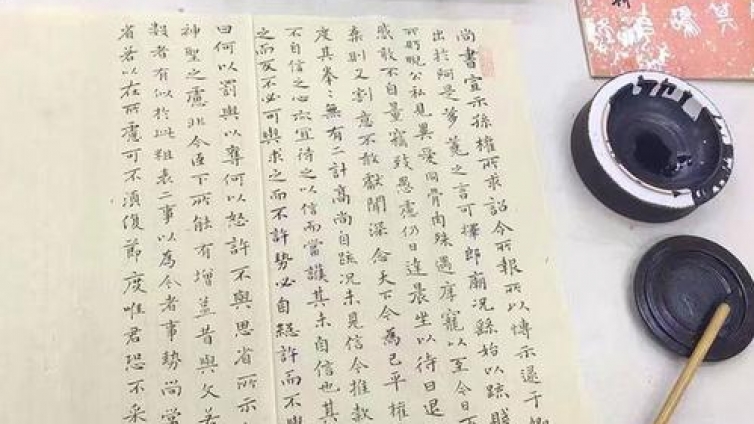 尚書宣示孫權所求詔令所報所以博示逮于卿
出於阿是芻蕘之言可擇郎廟況繇始以疏賤
所盼睨公私見異愛同骨肉殊遇厚寵以至今日
戚敢不自量竊致愚慮仍日達晨坐以待旦退
棄則又割意不敢獻聞深念天下今為已平權
度其拳〻無有二計高尚自疏況未見信今推款
不自信之心亦宜待之以信而當護其未自信也其
之而反不必可與求之而不許勢必自絕許而不與
曰何以罰與以奪何以怒許不與思省所示
神聖之慮非今臣下所能有增益昔與文若
數者有似於此粗表二事以為今者事勢尚當
省若以在所慮可不須復節度唯君恐不采